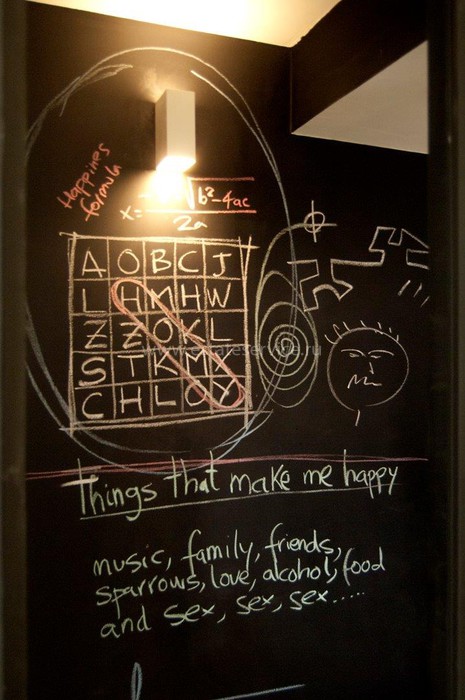 Happines
formula
√b²-4ac
x=
2a
A O B C J
L H M H W
Z Z O K L
S T K M X
C H L O Y
Things that make me happy
music, family, friends,
sparrows, love, alcohol, food
and sex, sex, sex.....